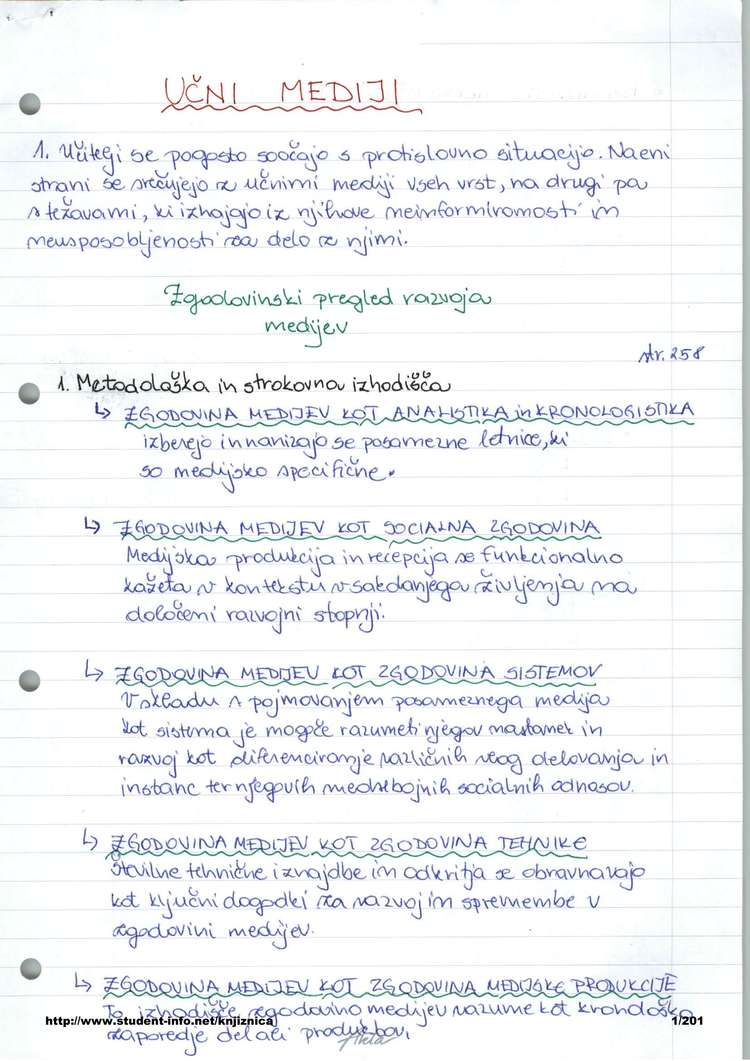 UČNI MEDIJI
1. Učitelji se pogosto soočajo s protislovno situacijo. Na eni
strani se srečujejo z učnimi mediji vseh vrst, na drugi pa
s težavami, ki izhajajo iz njihove neinformiranosti in
neusposobljenosti za delo z njimi.
Zgodovinski pregled razvoja
medijev
str. 258
1. Metodološka in strokovna izhodišča
↳ ZGODOVINA MEDIJEV KOT ANALISTIKA in KRONOLOGISTIKA
izberejo in nanizajo se posamezne letnice, ki
so medijsko specifične.
↳ ZGODOVINA MEDIJEV KOT SOCIALNA ZGODOVINA
Medijska produkcija in recepcija se funkcionalno
kažeta v kontekstu vsakdanjega življenja na
določeni razvojni stopnji.
↳ ZGODOVINA MEDIJEV KOT ZGODOVINA SISTEMOV
V skladu s pojmovanjem posameznega medija
kot sistema je mogoče razumeti njegov nastanek in
razvoj kot diferenciranje različnih vlog delovanja in
instanc ter njegovih medsebojnih socialnih odnosov.
↳ ZGODOVINA MEDIJEV KOT ZGODOVINA TEHNIKE
Številne tehnične iznajdbe in odkritja se obravnavajo
kot ključni dogodki za razvoj in spremembe v
zgodovini medijev.
↳ ZGODOVINA MEDIJEV KOT ZGODOVINA MEDIJSKE PRODUKCIJE
To izhodišče zgodovino medijev razume kot kronološko
http://www.student-info.net/knjiznica 1/201
zaporedje del ali produktov,